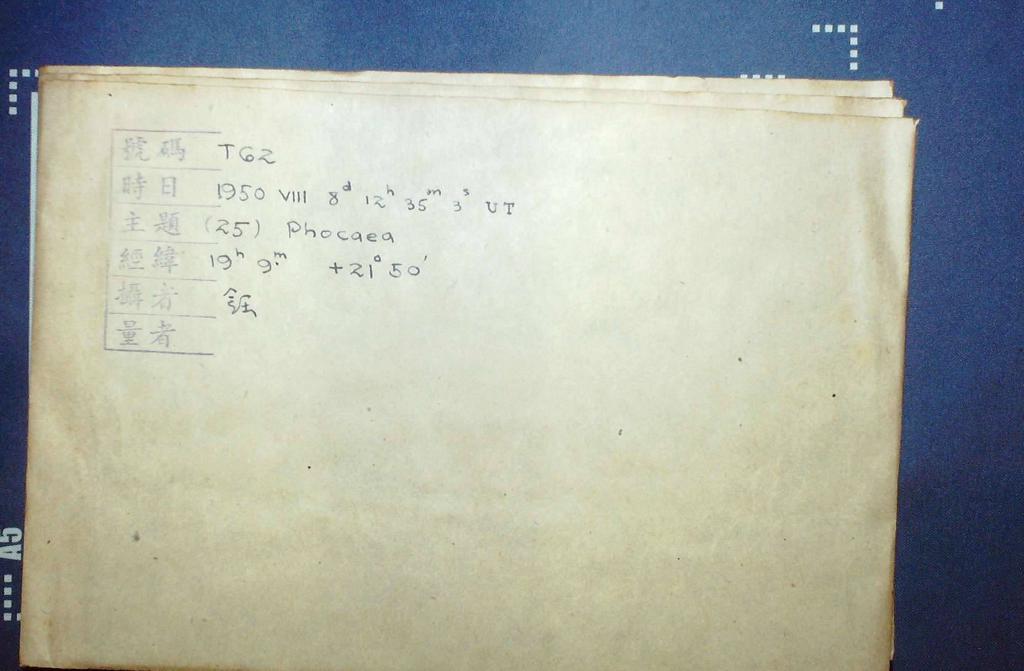 號碼 T62
時日 1950 VIII 8d 12h 35m 3s UT
主題 (25) Phocaea
經緯 19h 9m +21° 50′
攝者
量者
A5